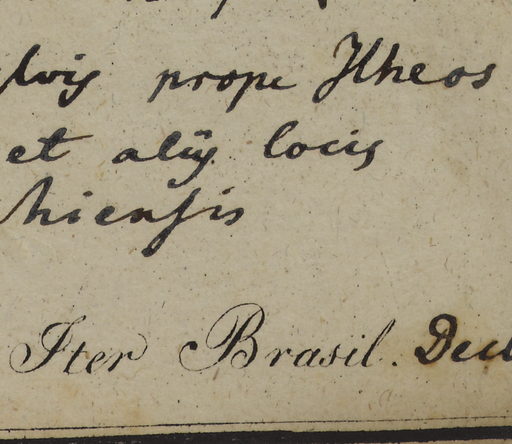 prope Ilheos
et aliis locis
hiensis
Iter Brasil. Dec